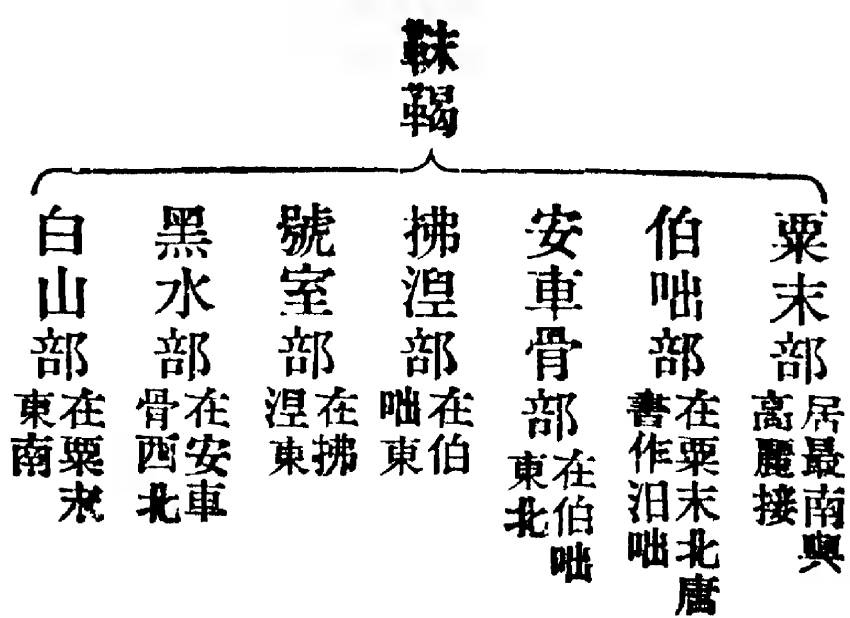 靺鞨
粟末部
居最南與
高麗接
伯咄部
在粟末北唐
書作汨咄
安車骨部
在伯咄
東北
拂涅部
在伯
咄東
號室部
在拂
涅東
黑水部
在安車
骨西北
白山部
在粟末
東南